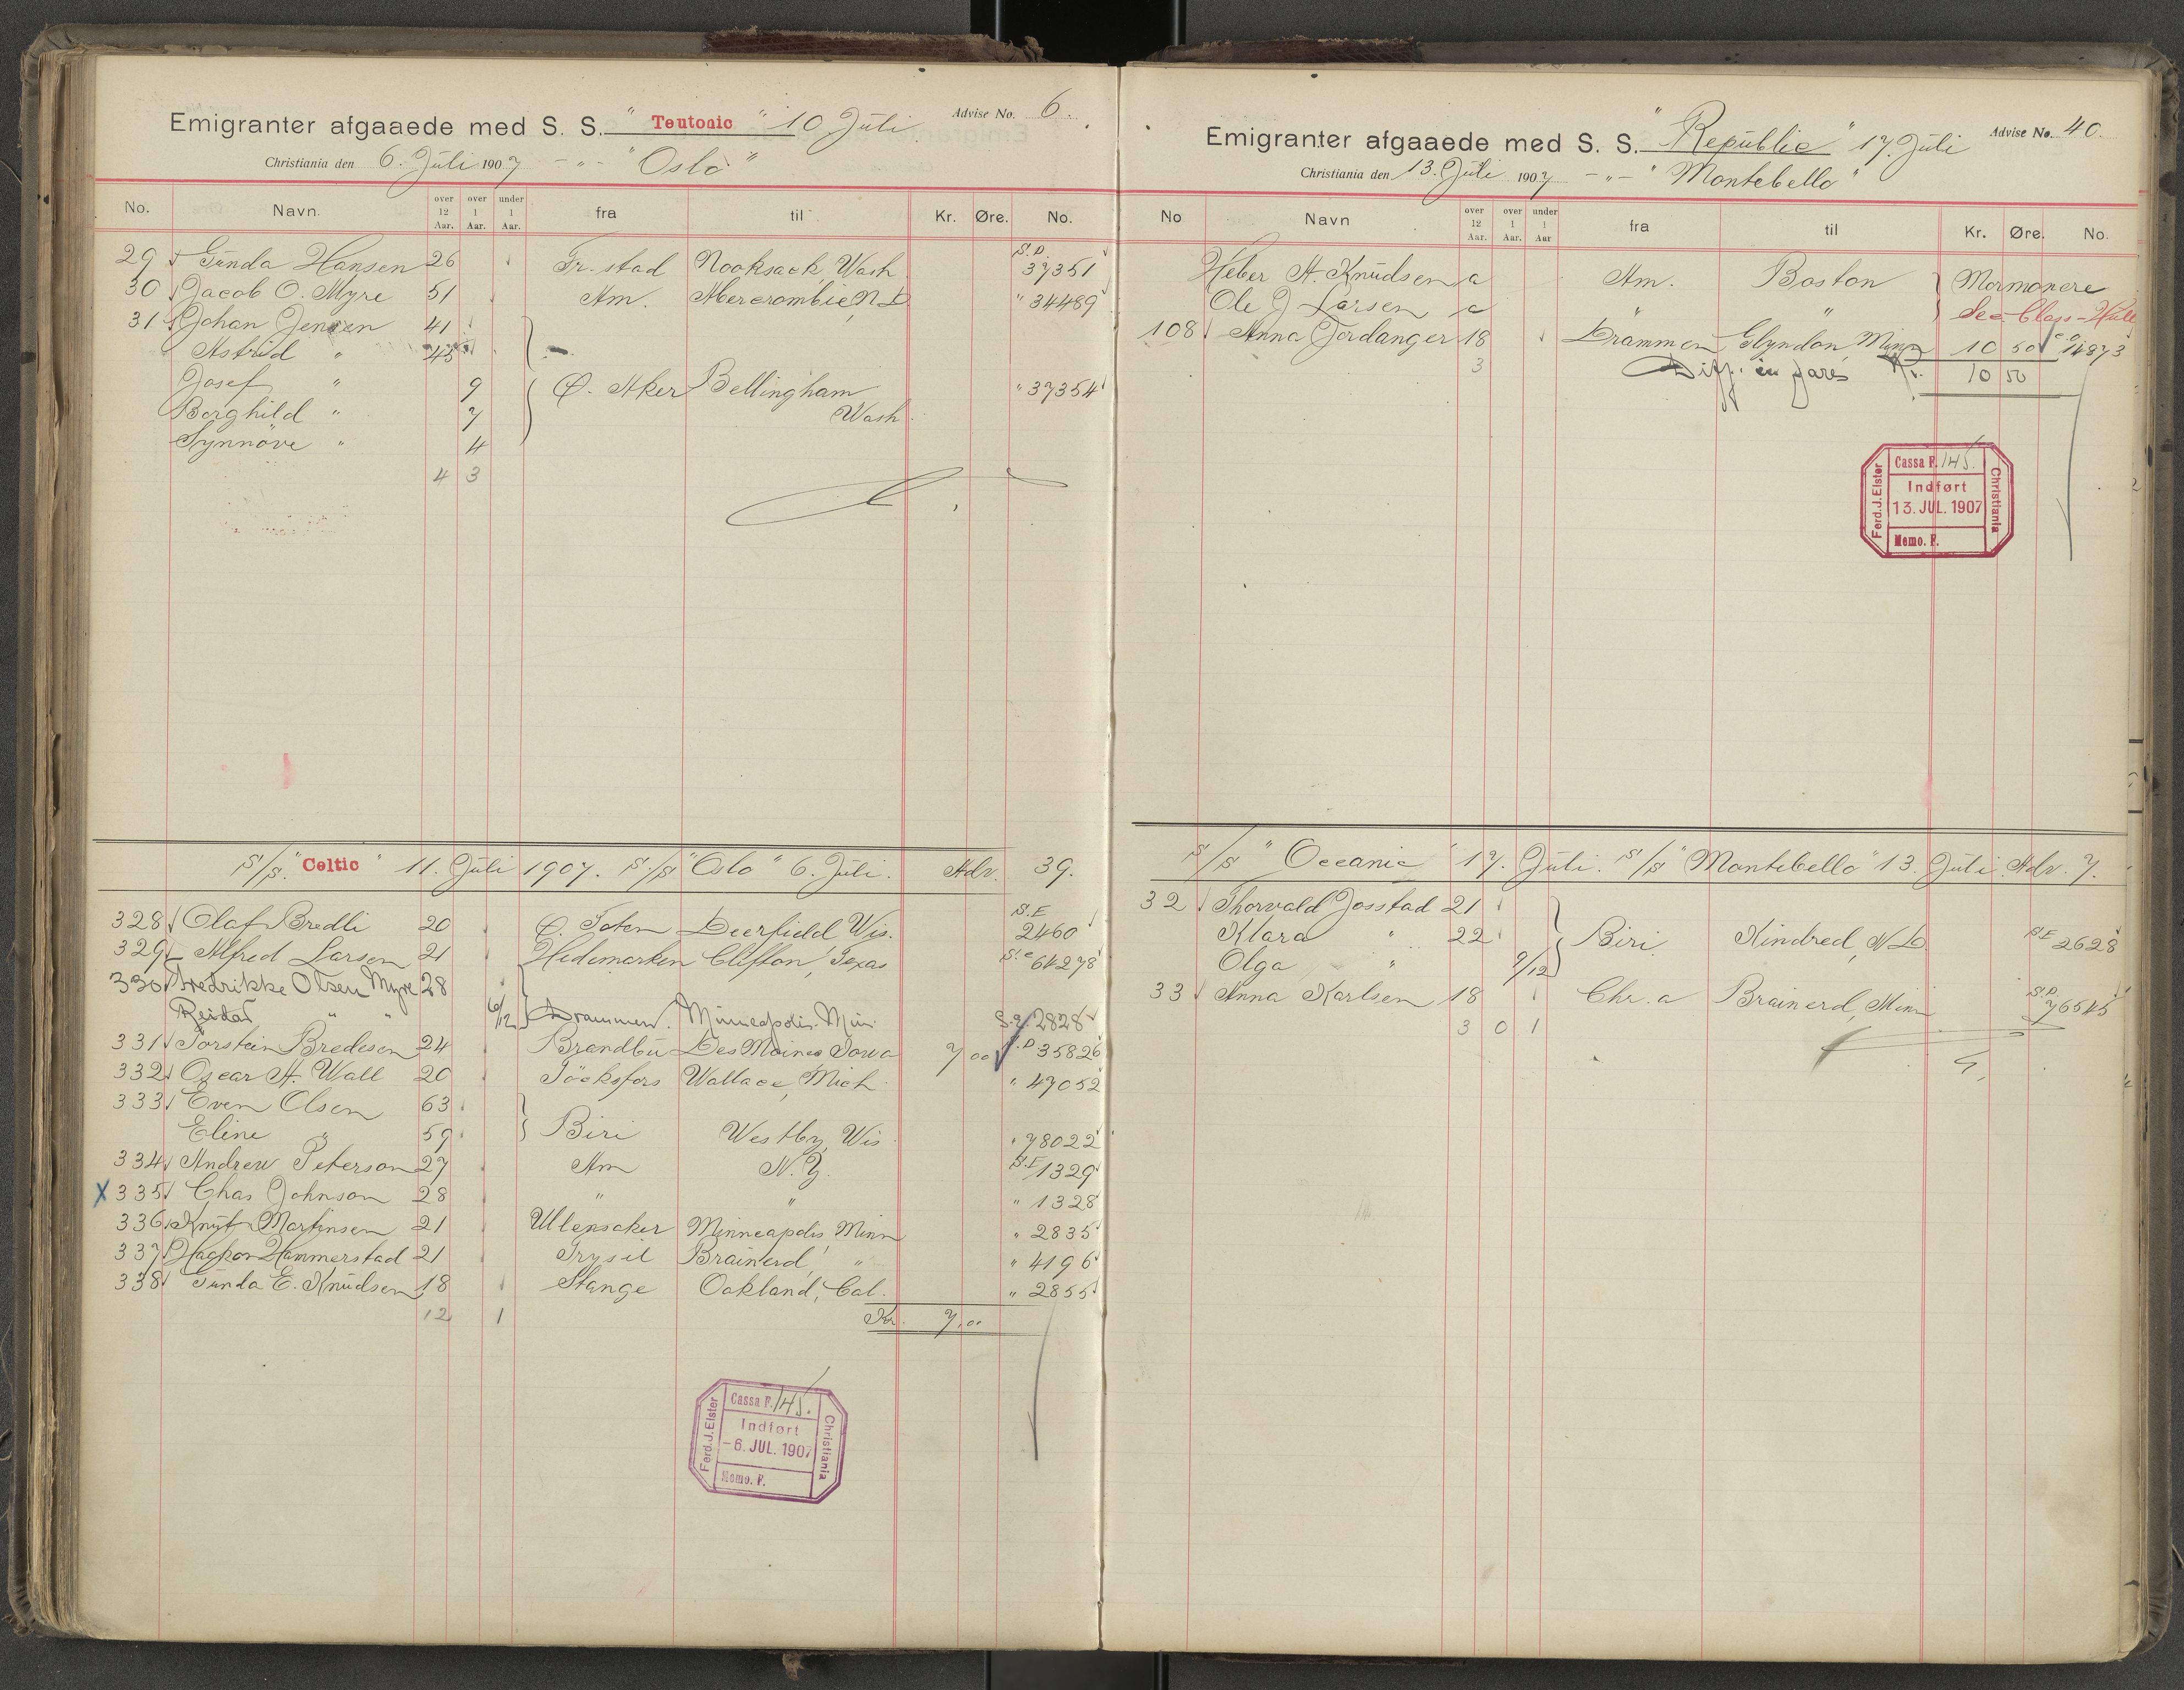 Emigranter afgaaede med S. S. " Teutonic " 10 Juli Advise No. 6.
Christiania den 6. Juli 1907 - " - " Oslo "
No. Navn. over 12 Aar. over 1 Aar. under 1 Aar. fra til Kr. Øre. No.
29 Gunda Hansen 26 Fr.stad Nooksack, Wash S.P. 37351
30 Jacob O. Myre 51 Am. Abercrombie, N D " 34489
31 Johan Jensen 41
Astrid " 45
Josef " 9 Ø. Aker Bellingham " 37354
Borghild " 7 Wash.
Synnöve " 4
4 3
S/S. " Celtic " 11. Juli 1907. S/S " Oslo " 6. Juli. Adv. 39.
328 Olaf Bredli 20 Ø. Toten Deerfield Wis. S.E 2460
329 Alfred Larsen 21 Hedemarken Clifton, Texas S.C 64278
330 Fredrikke Olsen Myre 28
Reidar " " 6/12 Drammen. Minneapolis. Min. 2828
331 Torstein Bredesen 24 Brandbu Des Moines Iowa 7 00 S.P 35826
332 Oscar A. Wall 20 Töcksfors Wallace, Mich. " 47052
333 Even Olsen 63
Eline " 59 Biri Westby, Wis. " 78022
334 Andrew Peterson 27 Am N. Y. S.E 1329
X 335 Chas Johnson 28 " " " 1328
336 Knut Martinsen 21 Ullensaker Minneapolis Minn " 2835
337 Haakon Hammerstad 21 Trysil Brainerd, " " 4196
338 Gunda E. Knudsen 18 Stange Oakland, Cal. " 2855
12 1 Kr. 7,00
Ferd. J. Elster
Cassa F. 145.
Indført
-6. JUL. 1907
Memo. F.
Christiania
Emigranter afgaaede med S. S. " Republic " 17. Juli Advise No. 40.
Christiania den 13. Juli 1907 - " - " Montebello "
No Navn over 12 Aar. over 1 Aar. under 1 Aar fra til Kr. Øre. No.
Heber A. Knudsen a Am. Boston Mormonere
Ole J Larsen a " " Sec. Class - Hull
108 Anna Jordanger 18 Drammen Glyndon, Minn 10 50 14873
3 Diff. in fares Kr. 10 50
Ferd. J. Elster
Cassa F. 145.
Indført
13. JUL. 1907
Memo. F.
Christiania
S/S " Oceanic " 17. Juli. S/S " Montebello " 13. Juli. Adv. 7.
32 Thorvald Josstad 21
Klara " 22 Biri Kindred, N D S.E 2628
Olga " 9/12
33 Anna Karlsen 18 Chr.a Brainerd, Minn S.P. 76545
3 0 1